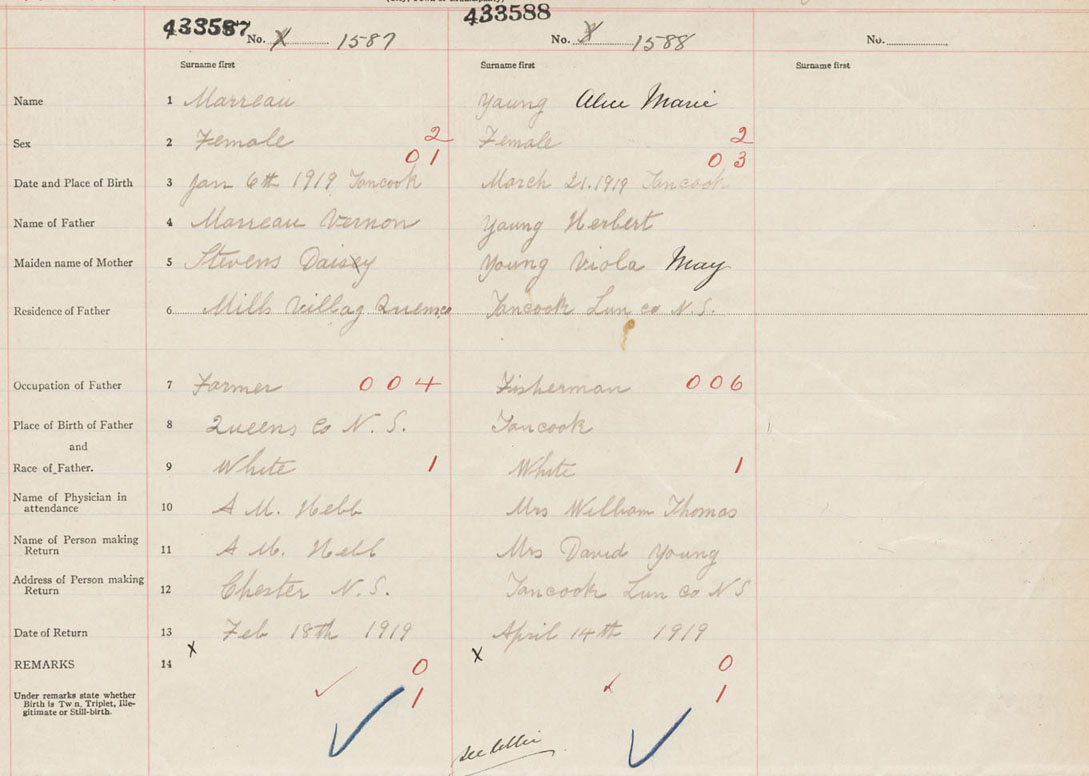 433587 No. X 1587 433588 No. X 1588 No.
Surname first Surname first Surname first
Name 1 Marreau Young Alice Marie
Sex 2 Female 2 Female 2
01 03
Date and Place of Birth 3 Jan 6th 1919 Tancook March 21.1919 Tancook
Name of Father 4 Marreau Vernon Young Herbert
Maiden name of Mother 5 Stevens Daisey Young Viola May
Residence of Father 6 Mills Villag Queens co Tancook Lun co N.S.
Occupation of Father 7 Farmer 004 Fisherman 006
Place of Birth of Father 8 Queens Co N.S. Tancook
and
Race of Father. 9 White 1 White 1
Name of Physician in
attendance 10 A M. Hebb Mrs William Thomas
Name of Person making
Return 11 A M. Hebb Mrs David Young
Address of Person making
Return 12 Chester N.S. Tancook Lun Co N S
Date of Return 13 Feb 18th 1919 April 14th 1919
x x
REMARKS 14 0 0
Under remarks state whether 1 1
Birth is Tw n, Triplet, Ille-
gitimate or Still-birth.
see